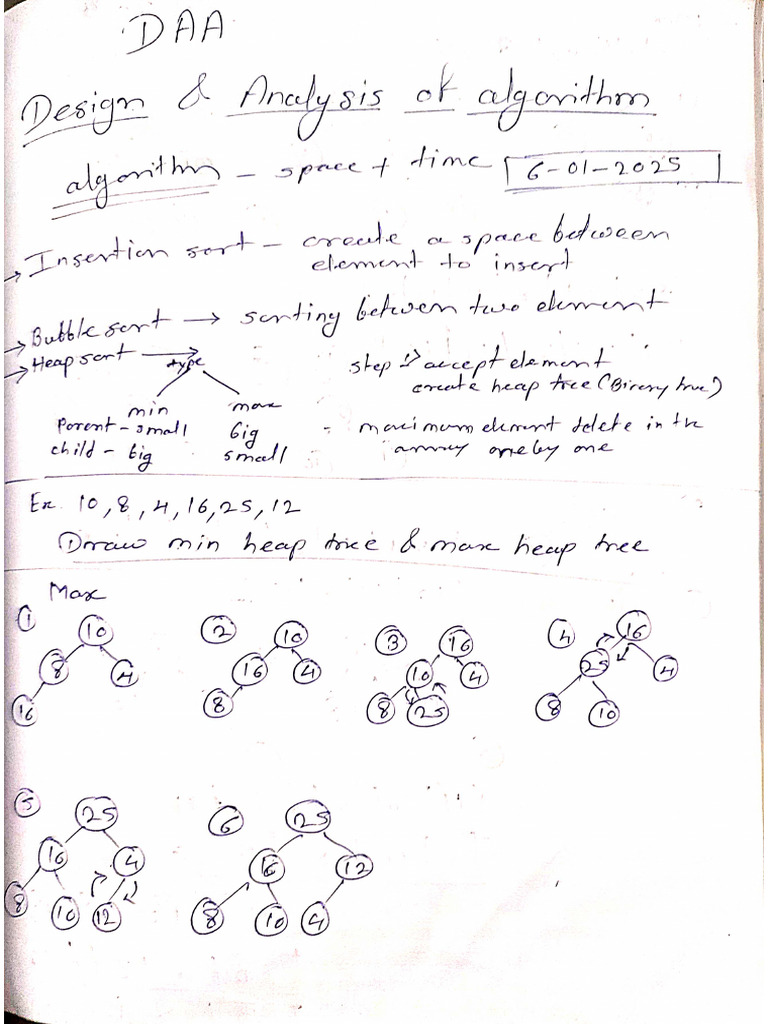 DAA
Design & Analysis of algorithm
algorithm - space + time 6-01-2025
→ Insertion sort - create a space between
element to insert
→ Bubble sort → sorting between two element
→ Heap sort → type
min max
Parent - small big
child - big small
step :→ accept element
create heap tree (Binary true)
- maximum element delete in the
array one by one
Ex. 10, 8, 4, 16, 25, 12
Draw min heap tree & max heap tree
Max
1 10 8 4 16
2 10 16 4 8
3 16 10 4 8 25
4 16 25 4 8 10
5 25 16 4 8 10 12
6 25 16 12 8 10 4